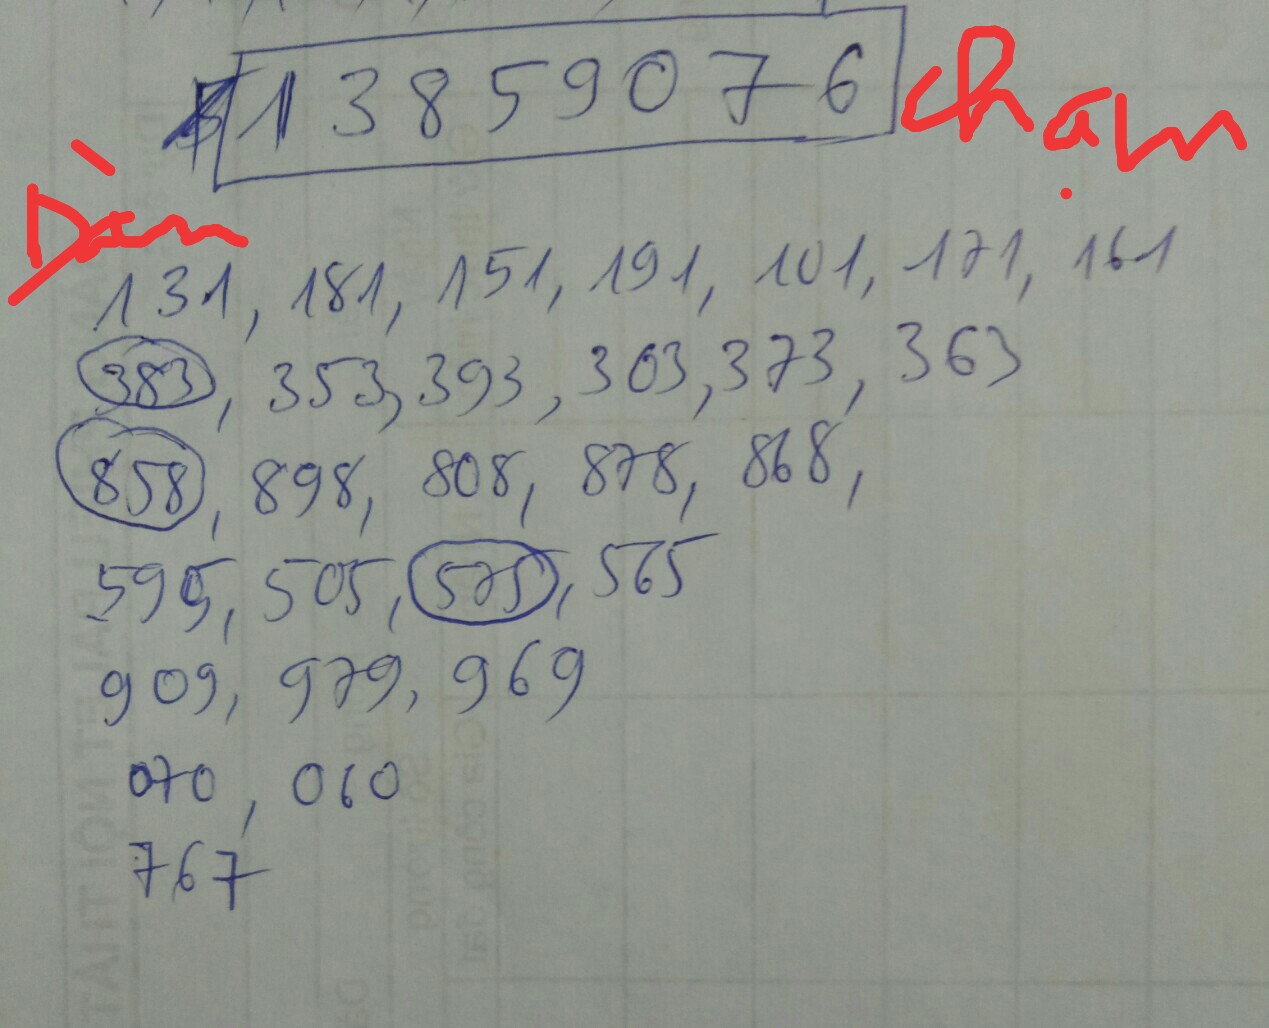 13859076 chạm
Dàn
131, 181, 151, 191, 101, 171, 161
383, 353, 393, 303, 373, 363
858, 898, 808, 878, 868,
595, 505, 575, 565
909, 979, 969
070, 060
767